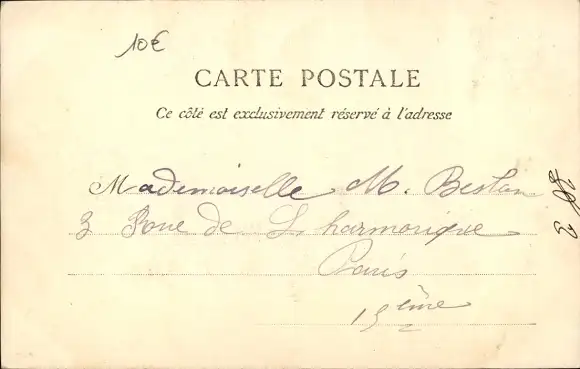 10€
CARTE POSTALE
Ce côté est exclusivement réservé à l'adresse
Mademoiselle M. Beslan
3 Rue de L'harmonique
Paris
15ème